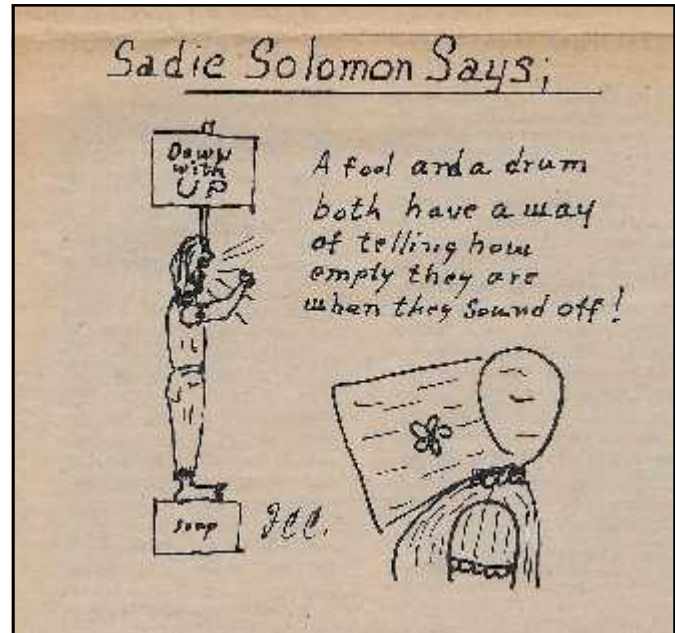 Sadie Solomon Says;
Down
with
UP
A fool and a drum
both have a way
of telling how
empty they are
when they sound off!
soap